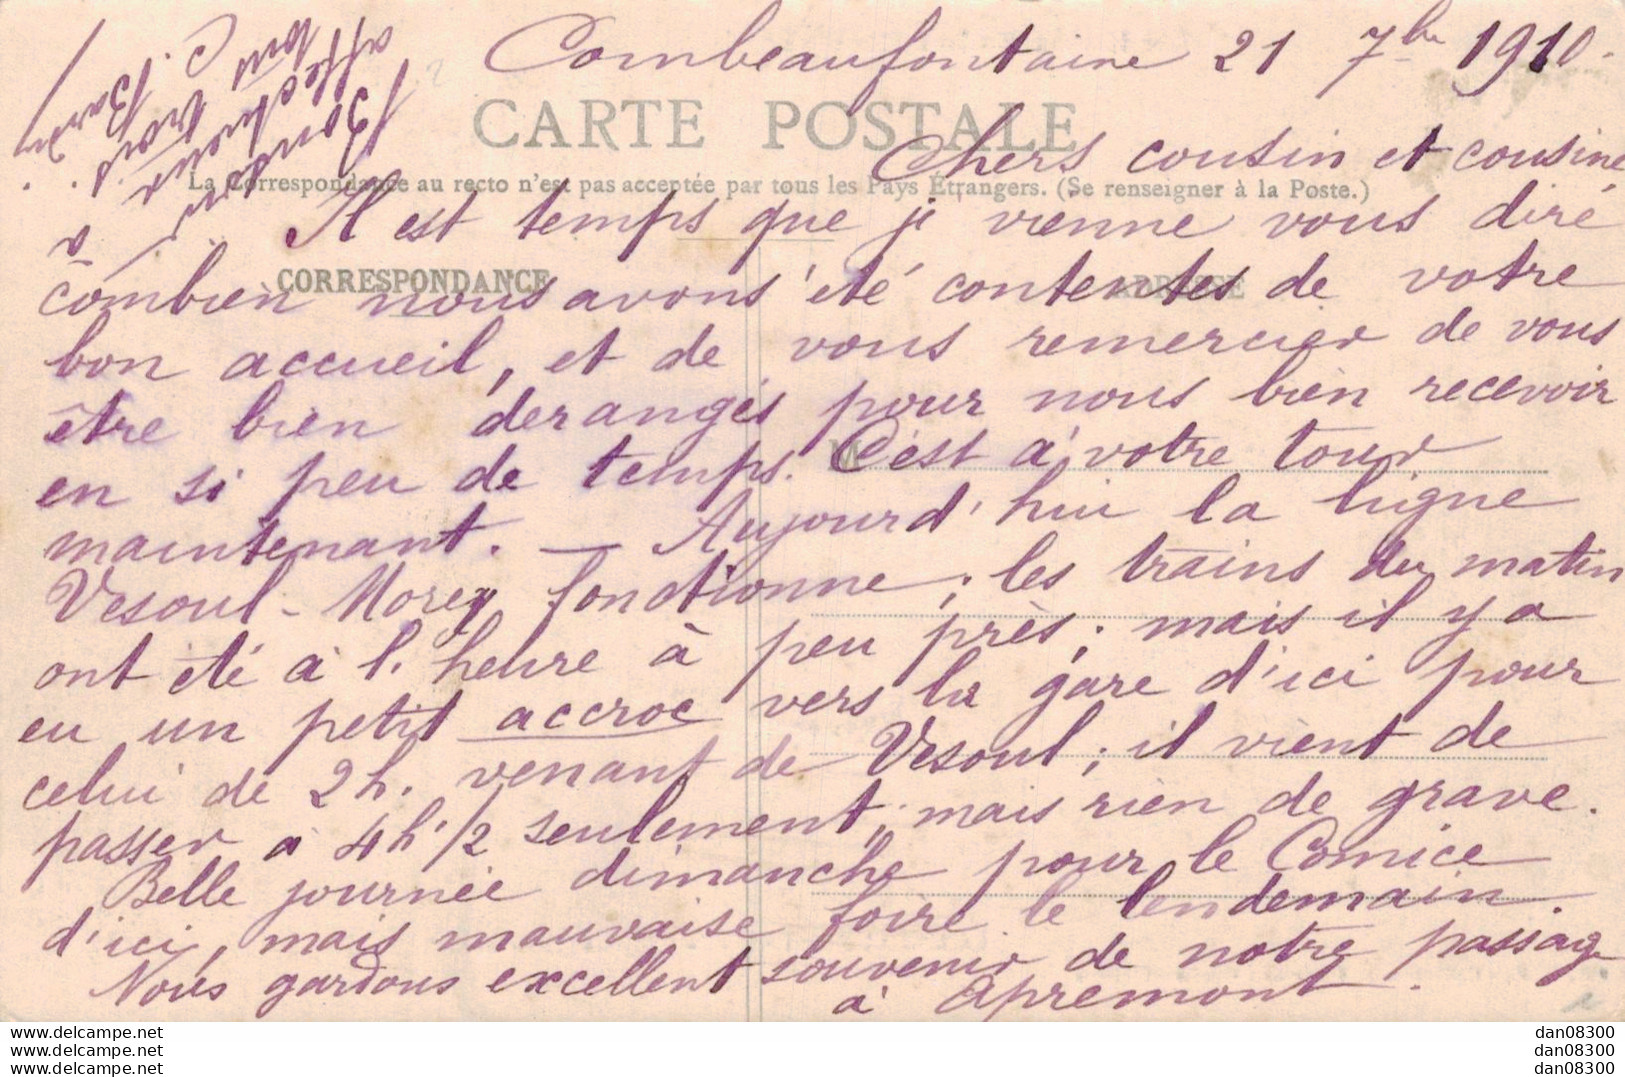 Combeaufontaine 21 7bre 1910.
CARTE POSTALE
Chers cousin et cousine
La Correspondance au recto n'est pas acceptée par tous les Pays Étrangers. (Se renseigner à la Poste.)
Il est temps que je vienne vous diré
CORRESPONDANCE
ADRESSE
combien nous avons été contentes de votre
bon accueil, et de vous remercier de vous
être bien derangés pour nous bien recevoir
M
en si peu de temps. C'est à votre tour
maintenant. — Aujourd'hui la ligne
Vesoul-Morey fonctionne; les trains du matin
ont été à l'heure à peu près; mais il y a
eu un petit accroc vers la gare d'ici pour
celui de 2h. venant de Vesoul; il vient de
passer à 4h 1/2 seulement; mais rien de grave.
Belle journée dimanche pour le Comice
d'ici, mais mauvaise foire le lendemain.
Nous gardons excellent souvenir de notre passage
à Apremont.
Bonjour
affectueux
à
tous
C.
dan08300
dan08300
dan08300
dan08300
dan08300
dan08300